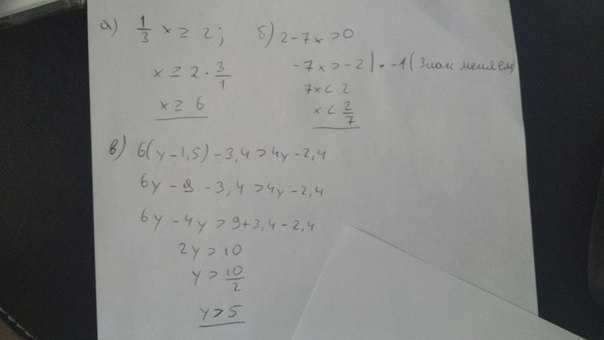 а) 1/3 x ≥ 2;
x ≥ 2 · 3/1
x ≥ 6
б) 2-7x>0
-7x > -2 | · -1 (Знак меняем)
7x < 2
x < 2/7
в) 6(y-1,5)-3,4>4y-2,4
6y - 9 - 3,4 > 4y - 2,4
6y - 4y > 9+3,4-2,4
2y > 10
y > 10/2
y > 5